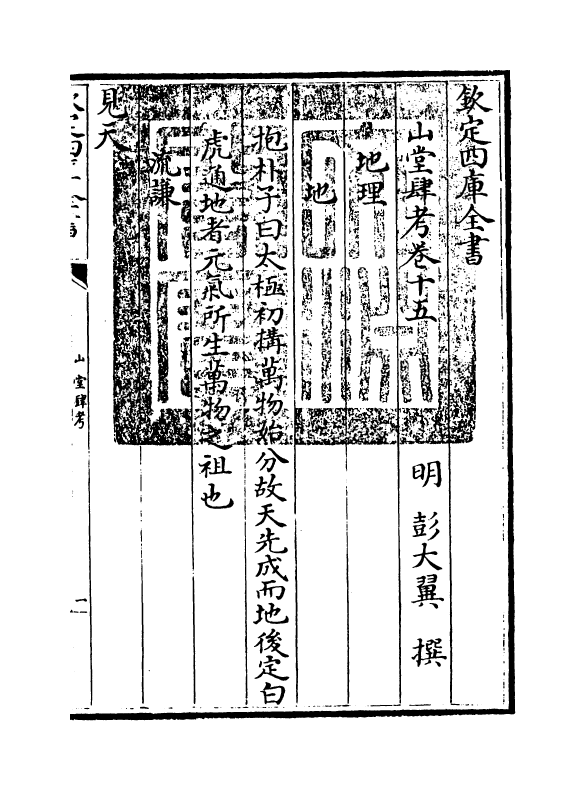 欽定四庫全書
山堂肆考卷十五
明 彭大翼 撰
地理
地
抱朴子曰太極初構萬物始分故天先成而地後定白
虎通地者元氣所生萬物之祖也
流謙
見天
山堂肆考
一